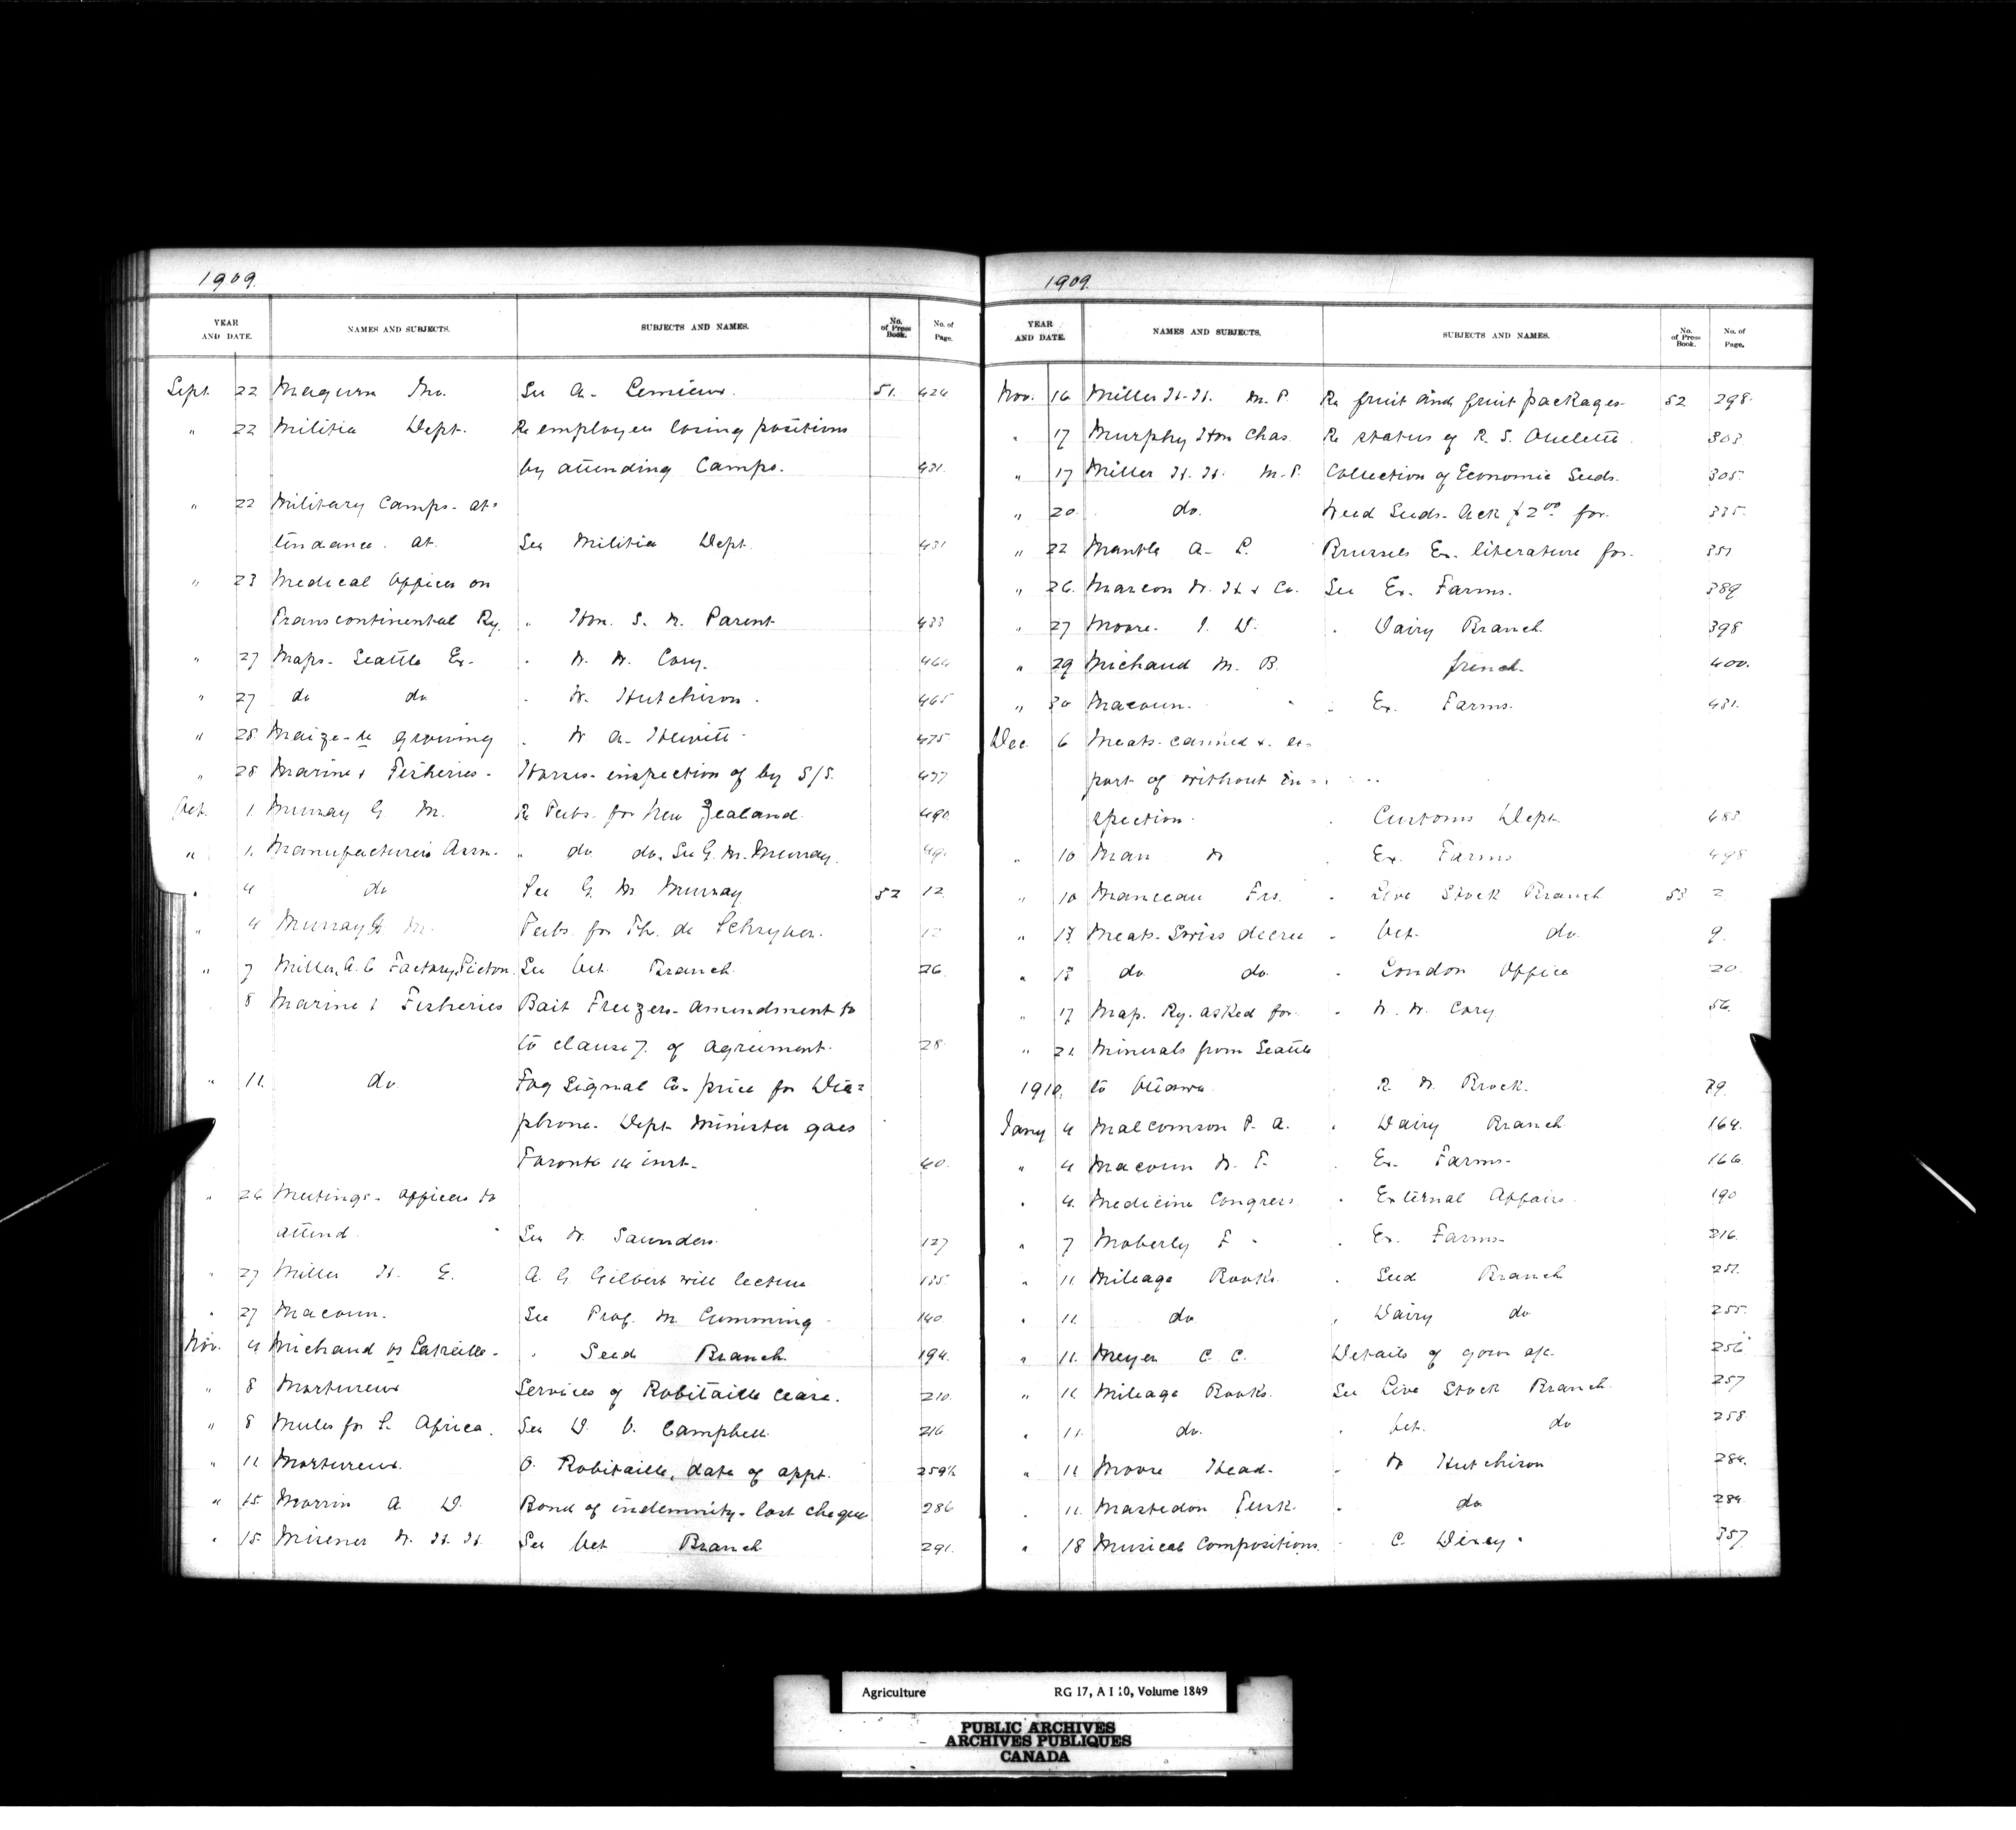 1909.
YEAR AND DATE. NAMES AND SUBJECTS. SUBJECTS AND NAMES. No. of Press Book. No. of Page.
Sept. 22 Magurn See A. Lemieux. 51. 424
" 22 Militia Dept. Re employees losing positions
by attending Camps. 431.
" 22 Military Camps. at=
tendance. at. See Militia Dept. 431
" 23 Medical Officer on
Transcontinental Ry. " Hon. S. N. Parent 433
" 27 Maps. Seattle Ex. " W. W. Cory. 464
" 27 do do " W. Hutchison. 465
" 28 Maize- re growing " W A. Hewitt. 475
" 28 Marine & Fisheries. Horses. inspection of by S/S. 477
Oct. 1. Murray G M. Re Pubs. for New Zealand. 490
" 1. Manufacturers Assn. " do do. See G. M. Murray. 49.
" 4 do See G. M Murray 52 12.
" 4 Murray G M. Pubs. for Th. de Schryver. 12
" 7 Miller, A. C Factory, Picton. See Vet. Branch. 26.
8 Marine & Fisheries Bait Freezers- amendment to
to clause 7. of agreement. 28.
" 11. do Fog Signal Co- price for Dia=
phone- Dept. Minister goes
Toronto 14 inst- 40.
" 26 Meetings. officers to
attend. See W. Saunders. 127
" 27 Miller H. E. A. G Gilbert will lecture 135
" 27 Macoun. See Prof. M Cumming. 140.
Nov. 4 Michaud vs Latreille. " Seed Branch. 194.
" 8 Martineau Services of Robitaille cease. 210.
" 8 Mules for S. Africa. See D. O. Campbell. 216
" 11 Martineau. O. Robitaille, date of appt. 259½
" 15. Morrin A D. Bond of indemnity- lost cheque 286
" 15. Misener W. H. H. See Vet Branch 291.
1909.
YEAR AND DATE. NAMES AND SUBJECTS. SUBJECTS AND NAMES. No. of Press Book. No. of Page.
Nov. 16 Miller H. H. M. P. Re fruit and fruit packages. 52 298.
" 17 Murphy Hon Chas. Re status of R. S. Ouelette. 303
" 17 Miller H. H. M. P. Collection of Economic Seeds. 305.
" 20. do. Weed Seeds. Ack $2.00 for. 335.
" 22 Mantle A. F. Brussels Ex. literature for. 351
" 26. Marcon W. H & Co. See Ex. Farms. 389
" 27 Moore. J. D. " Dairy Branch. 398
" 29 Michaud M. B. french. 400.
" 30 Macoun. " Ex. Farms. 431.
Dec. 6 Meats. canned &. ex=
port of without in=
spection. " Customs Dept. 483
" 10 Man W " Ex. Farms 498
" 10 Manceau Frs. " Live Stock Branch 53 2
" 13. Meats. Swiss decree " Vet. do. 9.
" 13 do do. " London Office 20
" 17 Map. Ry. asked for. " W. W. Cory 56.
" 21. Minerals from Seattle
1910. to Ottawa. " R. W. Brock. 79.
Jany 4 Malcomson P. A. " Dairy Branch 164.
" 4 Macoun W. T. " Ex. Farms. 166
" 4. Medicine Congress " External Affairs. 190
" 7 Moberly F " Ex. Farms. 216.
" 11 Mileage Books. " Seed Branch 251.
" 11 do " Dairy do 255.
" 11. Meyer C. C. Details of govn a/c. 256
" 11 Mileage Books. See Live Stock Branch. 257
" 11. do. " Vet. do 258
" 11 Moose Head. " W Hutchison 284.
" 11. Mastedon Tusk. " do 284.
" 18 Musical Compositions. " C. 357
Agriculture RG 17, A I 10, Volume 1849
PUBLIC ARCHIVES
ARCHIVES PUBLIQUES
CANADA